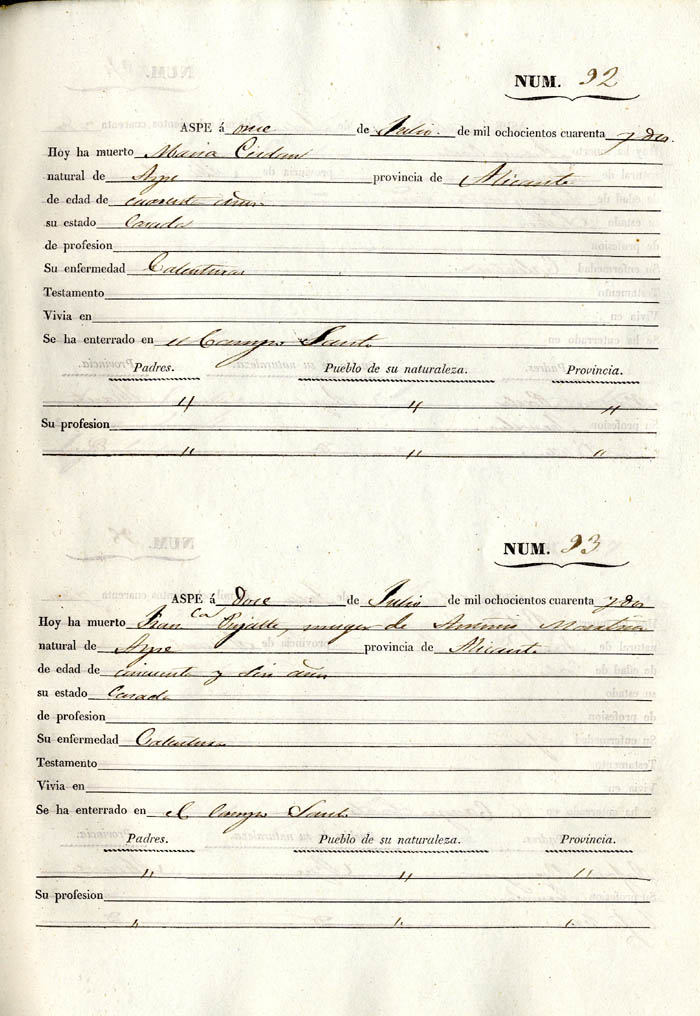 NUM. 92
ASPE á once de Julio de mil ochocientos cuarenta y dos.
Hoy ha muerto Maria
natural de Aspe provincia de Alicante
de edad de cuarenta años
su estado Casada
de profesion
Su enfermedad Calenturas
Testamento
Vivia en
Se ha enterrado en el Campo Santo
Padres. Pueblo de su naturaleza. Provincia.
" " "
Su profesion
" " "
NUM. 93
ASPE á doce de Julio de mil ochocientos cuarenta y dos
Hoy ha muerto Fran ca muger de Antonio
natural de Aspe provincia de Alicante
de edad de cincuenta y seis años
su estado Casada
de profesion
Su enfermedad Calenturas
Testamento
Vivia en
Se ha enterrado en el Campo Santo
Padres. Pueblo de su naturaleza. Provincia.
" " "
Su profesion
" " "